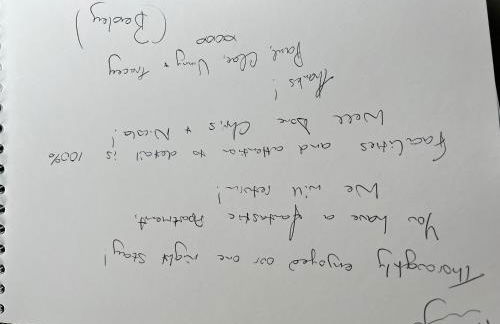 Thoroughly enjoyed our one night stay!
You have a fantastic Apartment,
We will return!
Facilities and attention to detail is 100%
Well Done Chris + Nicola!
Thanks!
Paul, Cloe, Vinny + Tracey
xxxx
(Bexley)